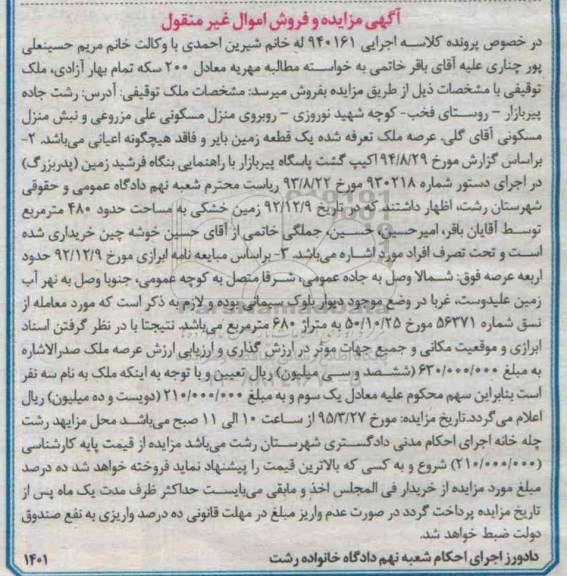 آگهی مزایده و فروش اموال غیر منقول
در خصوص پرونده کلاسه اجرایی ۹۴۰۱۶۱ له خانم شیرین احمدی با وکالت خانم مریم حسینعلی
پور چناری علیه آقای باقر خاتمی به خواسته مطالبه مهریه معادل ۲۰۰ سکه تمام بهار آزادی، ملک
توقیفی با مشخصات ذیل از طریق مزایده بفروش میرسد: مشخصات ملک توقیفی: آدرس: رشت جاده
پیربازار – روستای فخب- کوچه شهید نوروزی – روبروی منزل مسکونی علی مزروعی و نبش منزل
مسکونی آقای گلی. عرصه ملک تعرفه شده یک قطعه زمین بایر و فاقد هیچگونه اعیانی می‌باشد. ۲-
براساس گزارش مورخ ۹۴/۸/۲۹ اکیپ گشت پاسگاه پیربازار با راهنمایی بنگاه فرشید زمین (پدربزرگ)
در اجرای دستور شماره ۹۳۰۲۱۸ مورخ ۹۳/۸/۲۲ ریاست محترم شعبه نهم دادگاه عمومی و حقوقی
شهرستان رشت، اظهار داشتند که در تاریخ ۹۲/۱۲/۹ زمین خشکی به مساحت حدود ۴۸۰ مترمربع
توسط آقایان باقر، امیرحسین، حسین، جملگی خاتمی از آقای حسین خوشه چین خریداری شده
است و تحت تصرف افراد مورد اشاره می‌باشد. ۳- براساس مبایعه نامه ابرازی مورخ ۹۲/۱۲/۹ حدود
اربعه عرصه فوق: شمالا وصل به جاده عمومی، شرقا متصل به کوچه عمومی، جنوبا وصل به نهر آب
زمین علیدوست، غربا در وضع موجود دیوار بلوک سیمانی بوده و لازم به ذکر است که مورد معامله از
نسق شماره ۵۶۳۷۱ مورخ ۵۰/۱۰/۲۵ به متراژ ۶۸۰ مترمربع می‌باشد. نتیجتا با در نظر گرفتن اسناد
ابرازی و موقعیت مکانی و جمیع جهات موثر در ارزش گذاری و ارزیابی ارزش عرصه ملک صدرالاشاره
به مبلغ ۶۳۰/۰۰۰/۰۰۰ (ششصد و سی میلیون) ریال تعیین و با توجه به اینکه ملک به نام سه نفر
است بنابراین سهم محکوم علیه معادل یک سوم و به مبلغ ۲۱۰/۰۰۰/۰۰۰ (دویست و ده میلیون) ریال
اعلام می‌گردد.تاریخ مزایده: مورخ ۹۵/۳/۲۷ از ساعت ۱۰ الی ۱۱ صبح می‌باشد محل مزایهد رشت
چله خانه اجرای احکام مدنی دادگستری شهرستان رشت می‌باشد مزایده از قیمت پایه کارشناسی
(۲۱۰/۰۰۰/۰۰۰) شروع و به کسی که بالاترین قیمت را پیشنهاد نماید فروخته خواهد شد ده درصد
مبلغ مورد مزایده از خریدار فی المجلس اخذ و مابقی می‌بایست حداکثر ظرف مدت یک ماه پس از
تاریخ مزایده پرداخت گردد در صورت عدم واریز مبلغ در مهلت قانونی ده درصد واریزی به نفع صندوق
دولت ضبط خواهد شد.
دادورز اجرای احکام شعبه نهم دادگاه خانواده رشت ۱۴۰۱